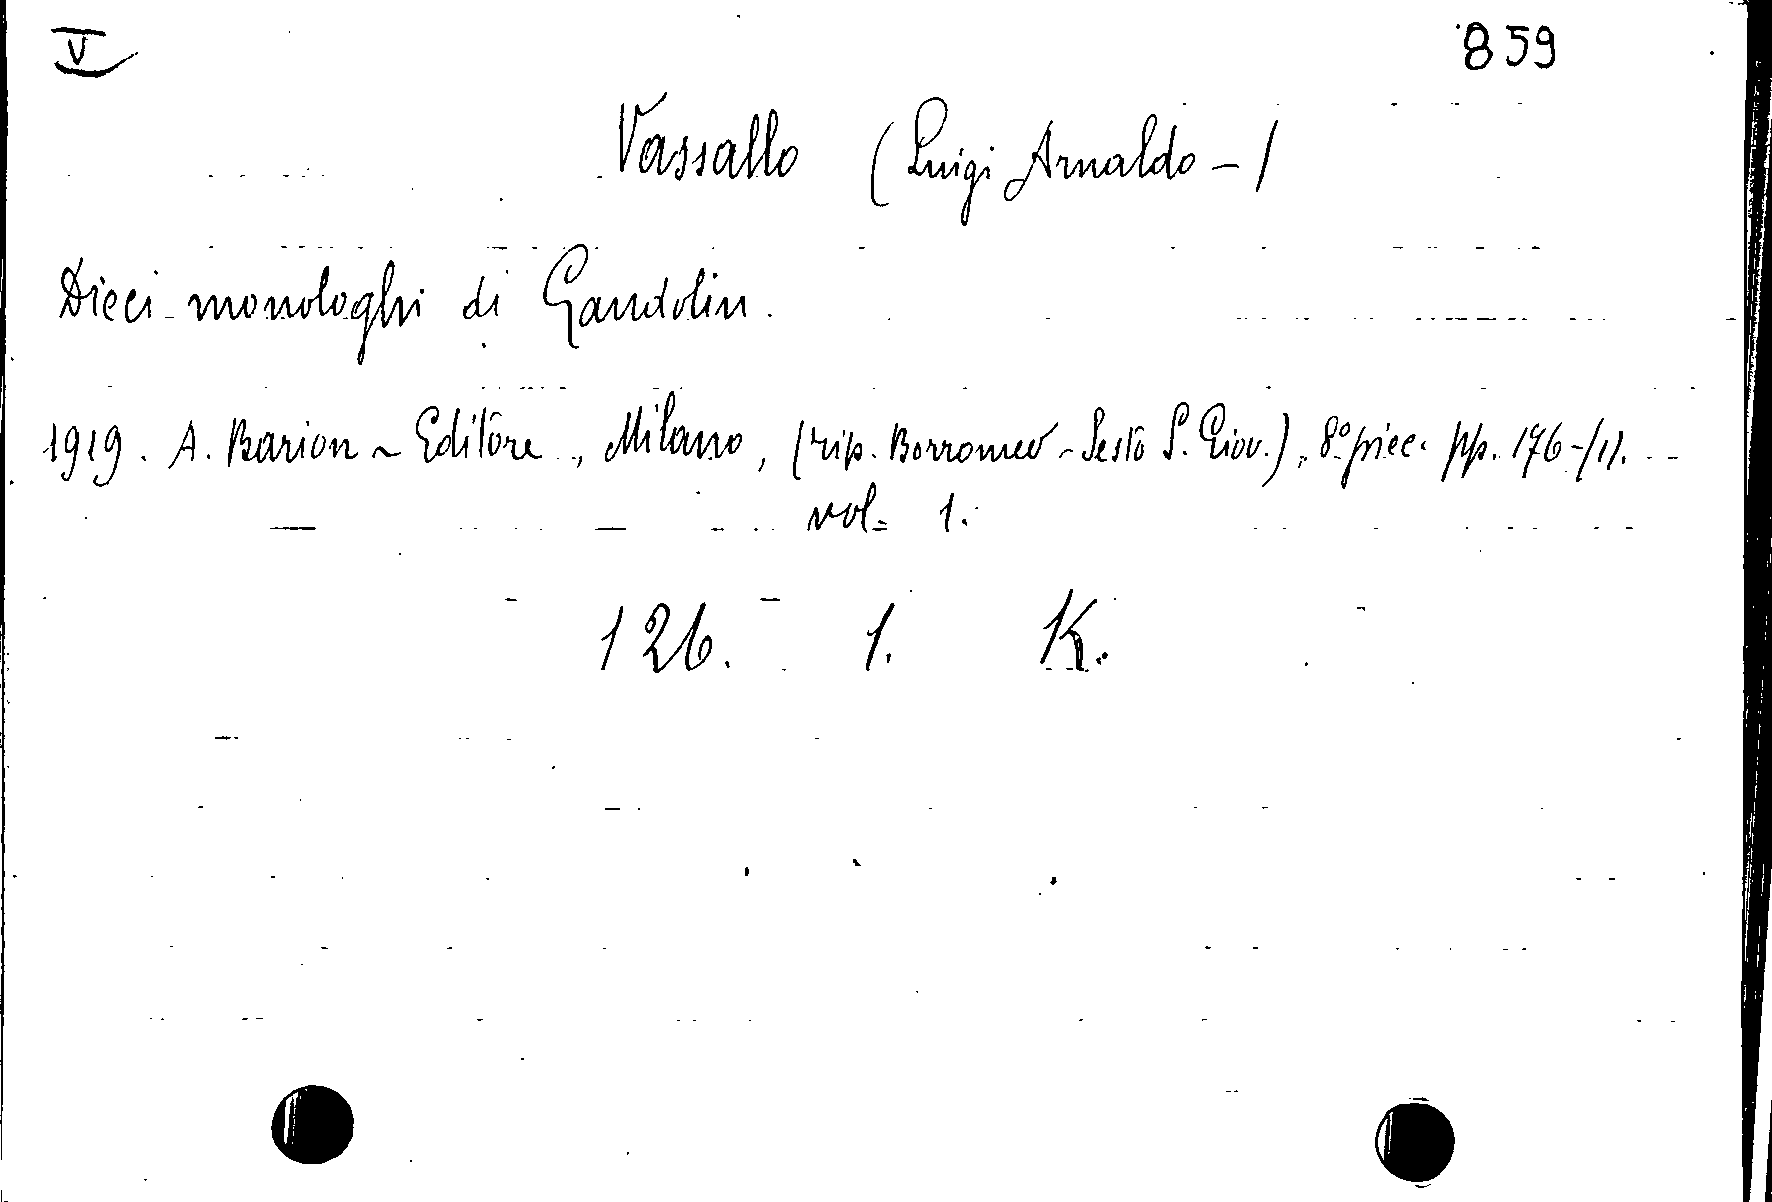 V 859
Vassallo (Luigi Arnaldo -/
Dieci monologhi di Gandolin.
1919. A. Barion ~ Editore, Milano, (tip. Borromeo - Sesto S. Giov.), 8º picc. pp. 176-/1/.
vol. 1.
126. 1. K.